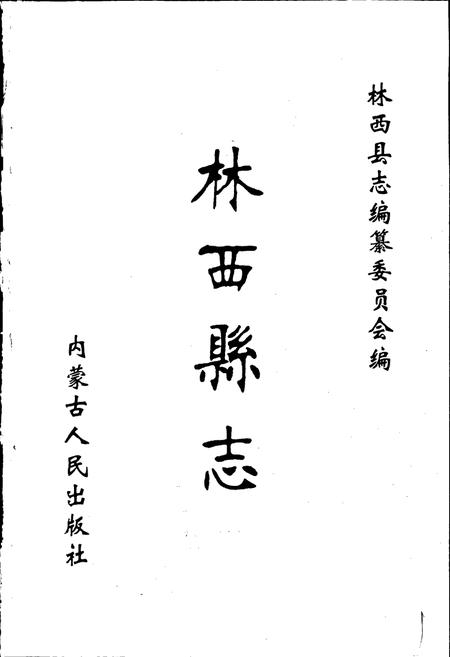 林西县志编纂委员会编
林西縣志
内蒙古人民出版社